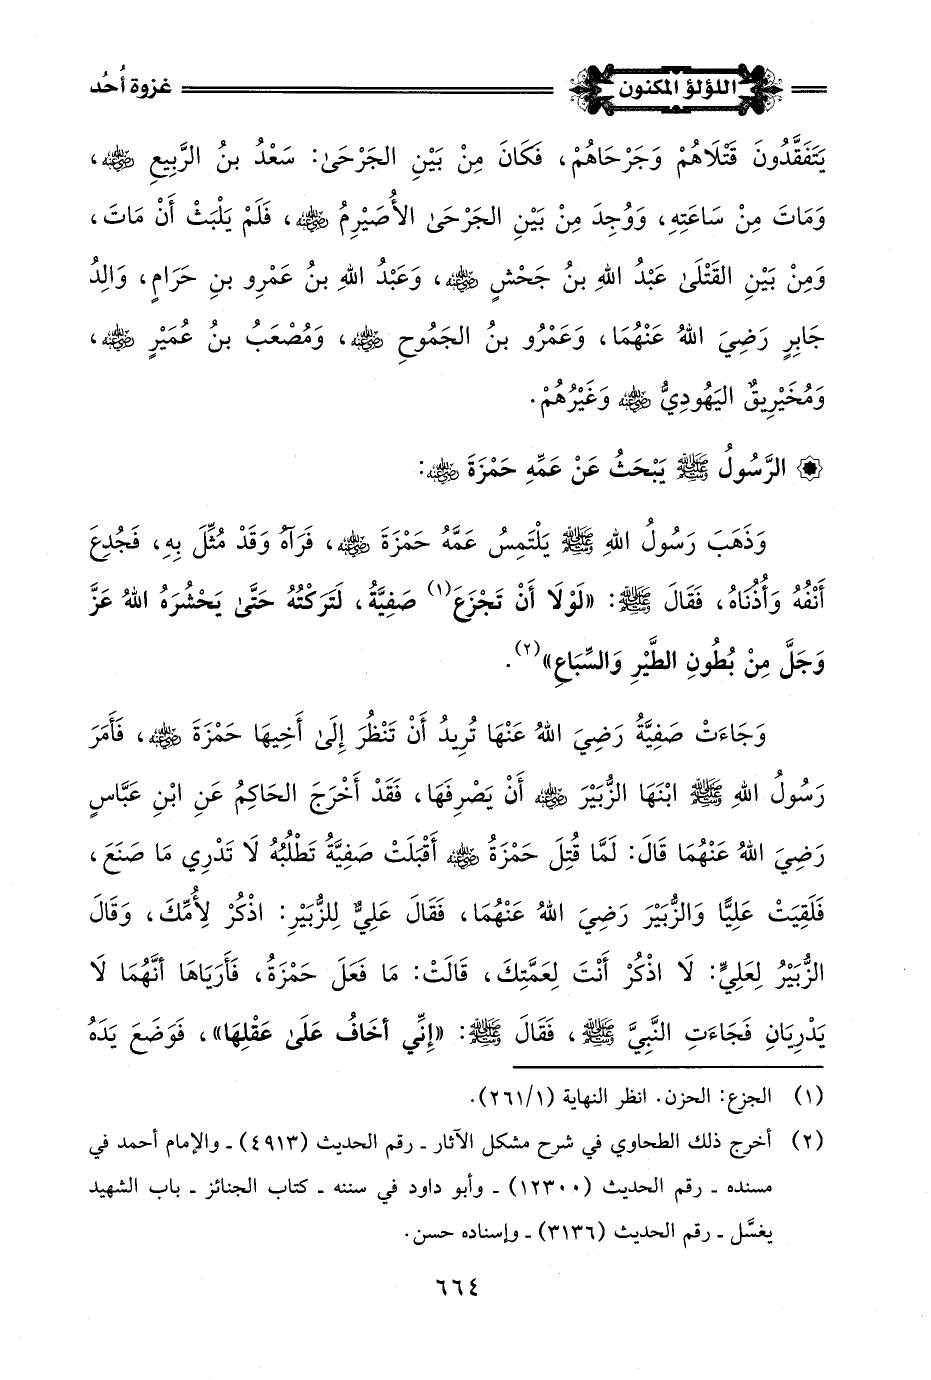 اللؤلؤ المكنون غزوة أُحُد
يَتَفَقَّدُونَ قَتْلَاهُمْ وَجَرْحَاهُمْ، فَكَانَ مِنْ بَيْنِ الجَرْحَىٰ: سَعْدُ بنُ الرَّبِيعِ رضي الله عنه،
وَمَاتَ مِنْ سَاعَتِهِ، وَوُجِدَ مِنْ بَيْنِ الجَرْحَىٰ الأُصَيْرِمُ رضي الله عنه، فَلَمْ يَلْبَثْ أَنْ مَاتَ،
وَمِنْ بَيْنِ القَتْلَىٰ عَبْدُ اللهِ بنُ جَحْشٍ رضي الله عنه، وَعَبْدُ اللهِ بنُ عَمْرِو بنِ حَرَامٍ، وَالِدُ
جَابِرٍ رَضِيَ اللهُ عَنْهُمَا، وَعَمْرُو بنُ الجَمُوحِ رضي الله عنه، وَمُصْعَبُ بنُ عُمَيْرٍ رضي الله عنه،
وَمُخَيْرِيقٌ اليَهُودِيُّ رضي الله عنه وَغَيْرُهُمْ.
الرَّسُولُ ﷺ يَبْحَثُ عَنْ عَمِّهِ حَمْزَةَ رضي الله عنه:
وَذَهَبَ رَسُولُ اللهِ ﷺ يَلْتَمِسُ عَمَّهُ حَمْزَةَ رضي الله عنه، فَرَآهُ وَقَدْ مُثِّلَ بِهِ، فَجُدِعَ
أَنْفُهُ وَأُذُنَاهُ، فَقَالَ ﷺ: «لَوْلَا أَنْ تَجْزَعَ(١) صَفِيَّةُ، لَتَرَكْتُهُ حَتَّىٰ يَحْشُرَهُ اللهُ عَزَّ
وَجَلَّ مِنْ بُطُونِ الطَّيْرِ وَالسِّبَاعِ»(٢).
وَجَاءَتْ صَفِيَّةُ رَضِيَ اللهُ عَنْهَا تُرِيدُ أَنْ تَنْظُرَ إِلَىٰ أَخِيهَا حَمْزَةَ رضي الله عنه، فَأَمَرَ
رَسُولُ اللهِ ﷺ ابْنَهَا الزُّبَيْرَ رضي الله عنه أَنْ يَصْرِفَهَا، فَقَدْ أَخْرَجَ الحَاكِمُ عَنِ ابْنِ عَبَّاسٍ
رَضِيَ اللهُ عَنْهُمَا قَالَ: لَمَّا قُتِلَ حَمْزَةُ رضي الله عنه أَقْبَلَتْ صَفِيَّةُ تَطْلُبُهُ لَا تَدْرِي مَا صَنَعَ،
فَلَقِيَتْ عَلِيًّا وَالزُّبَيْرَ رَضِيَ اللهُ عَنْهُمَا، فَقَالَ عَلِيٌّ لِلزُّبَيْرِ: اذْكُرْ لِأُمِّكَ، وَقَالَ
الزُّبَيْرُ لِعَلِيٍّ: لَا اذْكُرْ أَنْتَ لِعَمَّتِكَ، قَالَتْ: مَا فَعَلَ حَمْزَةُ، فَأَرَيَاهَا أنَّهُمَا لَا
يَدْرِيَانِ فَجَاءَتِ النَّبِيَّ ﷺ، فَقَالَ ﷺ: «إِنِّي أَخَافُ عَلَىٰ عَقْلِهَا»، فَوَضَعَ يَدَهُ
(١) الجزع: الحزن. انظر النهاية (٢٦١/١).
(٢) أخرج ذلك الطحاوي في شرح مشكل الآثار ـ رقم الحديث (٤٩١٣) ـ والإمام أحمد في
مسنده ـ رقم الحديث (١٢٣٠٠) ـ وأبو داود في سننه ـ كتاب الجنائز ـ باب الشهيد
يغسَّل ـ رقم الحديث (٣١٣٦) ـ وإسناده حسن.
٦٦٤